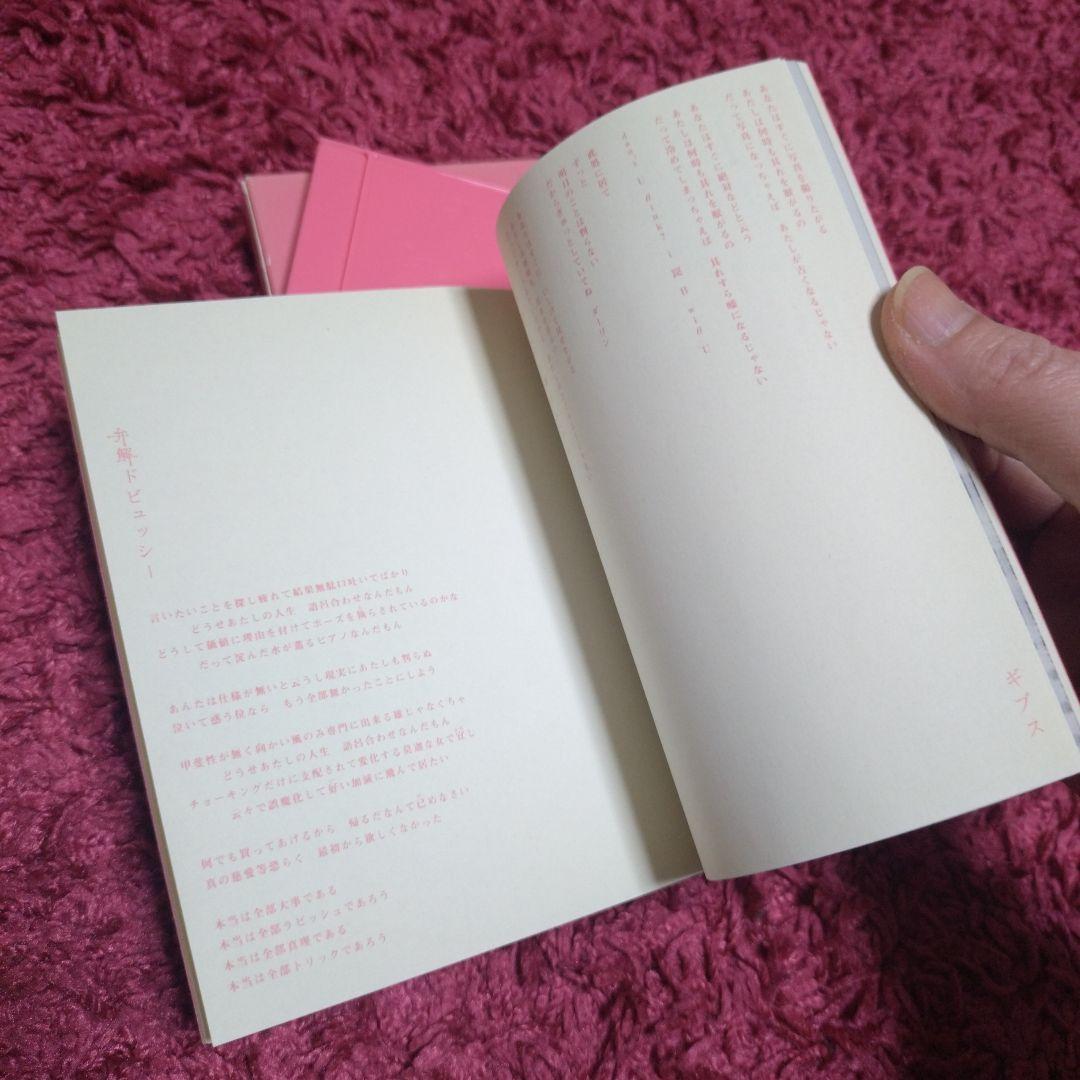 弁解ドビュッシー
言いたいことを探し疲れて結果無駄口吐いてばかり
どうせあたしの人生　語呂合わせなんだもん
どうして価値に理由を付けてポーズを執らされているのかな
だって淀んだ水が薫るピアノなんだもん
あんたは仕様が無いと云うし現実にあたしも判らぬ
泣いて惑う位なら　もう全部無かったことにしよう
甲斐性が無く向かい風のみ専門に出来る雄じゃなくちゃ
どうせあたしの人生　語呂合わせなんだもん
チョーキングだけに支配されて変化する莫連な女で宜し
云々で誤魔化して好い加減に飛んで居たい
何でも買ってあげるから　帰るだなんて已めなさい
真の慈愛等恐らく　最初から欲しくなかった
本当は全部大事である
本当は全部ラビッシュであろう
本当は全部真理である
本当は全部トリックであろう
ギプス
あなたはすぐに写真を撮りたがる
あたしは何時も其れを厭がるの
だって写真になっちゃえば　あたしが古くなるじゃない
あなたはすぐに絶対などと云う
あたしは何時も其れを厭がるの
だって冷めてしまっちゃえば　其れすら嘘になるじゃない
此処に居て
ずっと
明日のことは判らない
だからぎゅっとしていてね　ダーリン